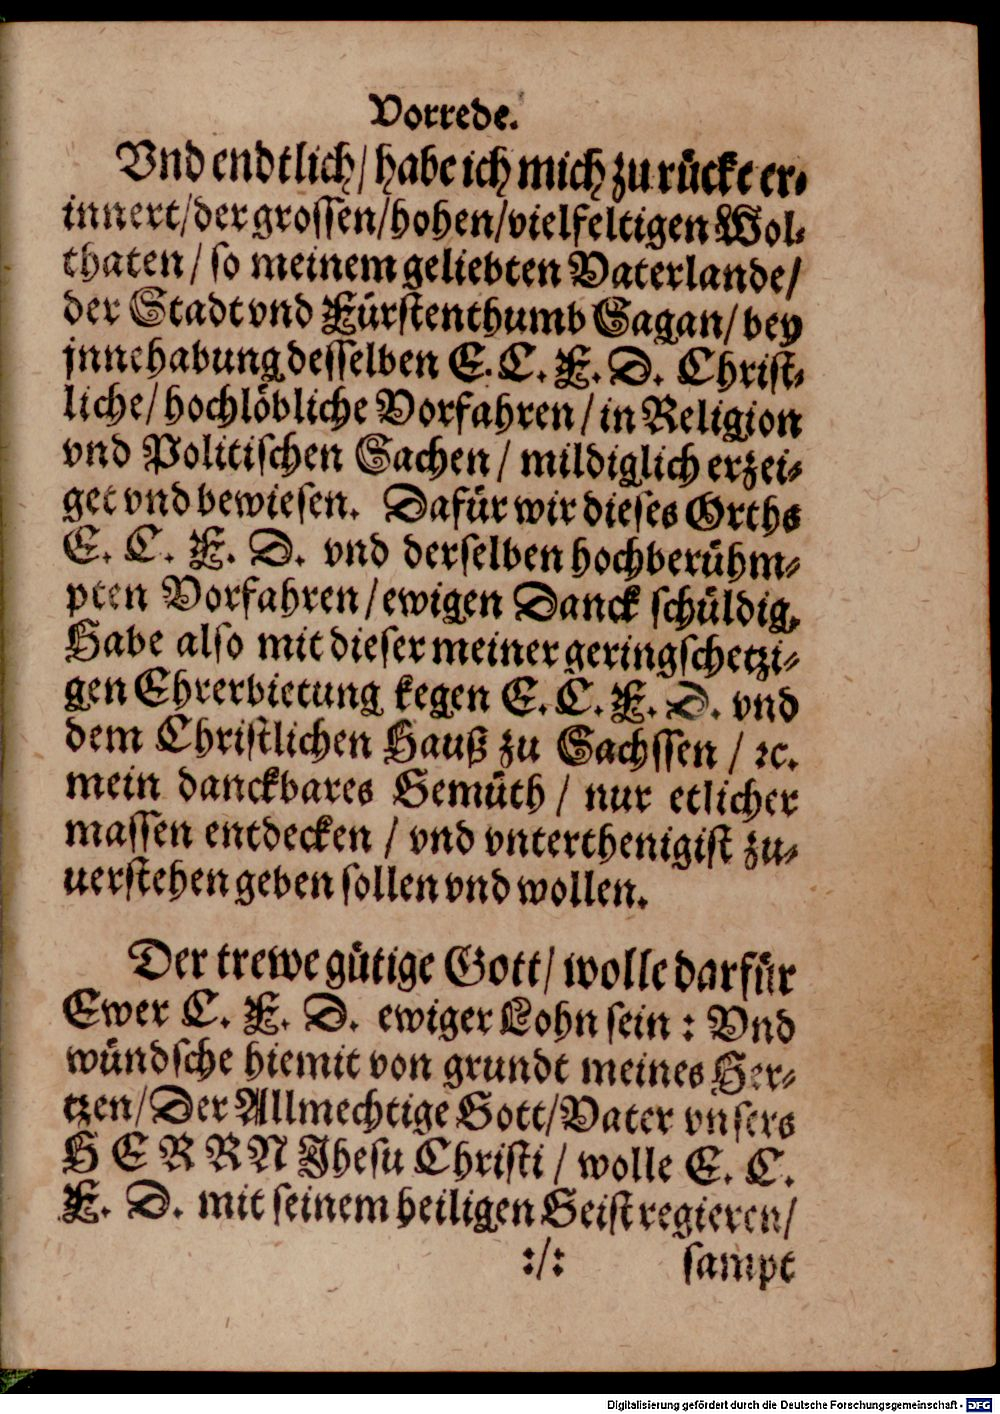 Vorrede.
Vnd endtlich/ habe ich mich zu rücke er-
innert/der grossen/hohen/vielfeltigen Wol-
thaten / so meinem geliebten Vaterlande/
der Stadt vnd Fürstenthumb Sagan/ bey
jnnehabung desselben E. C. F. D. Christ-
liche/ hochlöbliche Vorfahren / in Religion
vnd Politischen Sachen / mildiglich erzei-
get vnd bewiesen. Dafür wir dieses Orths
E. C. F. D. vnd derselben hochberühm-
pten Vorfahren / ewigen Danck schüldig.
Habe also mit dieser meiner geringschetzi-
gen Ehrerbietung kegen E. C. F. D. vnd
dem Christlichen Hauß zu Sachssen / ꝛc.
mein danckbares Gemüth / nur etlicher
massen entdecken / vnd vnterthenigist zu-
uerstehen geben sollen vnd wollen.
Der trewe gütige Gott/ wolle darfür
Ewer C. F. D. ewiger Lohn sein : Vnd
wündsche hiemit von grundt meines Her-
tzen/ Der Allmechtige Gott/ Vater vnsers
HERRN Jhesu Christi / wolle E. C.
F. D. mit seinem heiligen Geist regieren/
:/: sampt
Digitalisierung gefördert durch die Deutsche Forschungsgemeinschaft - DFG